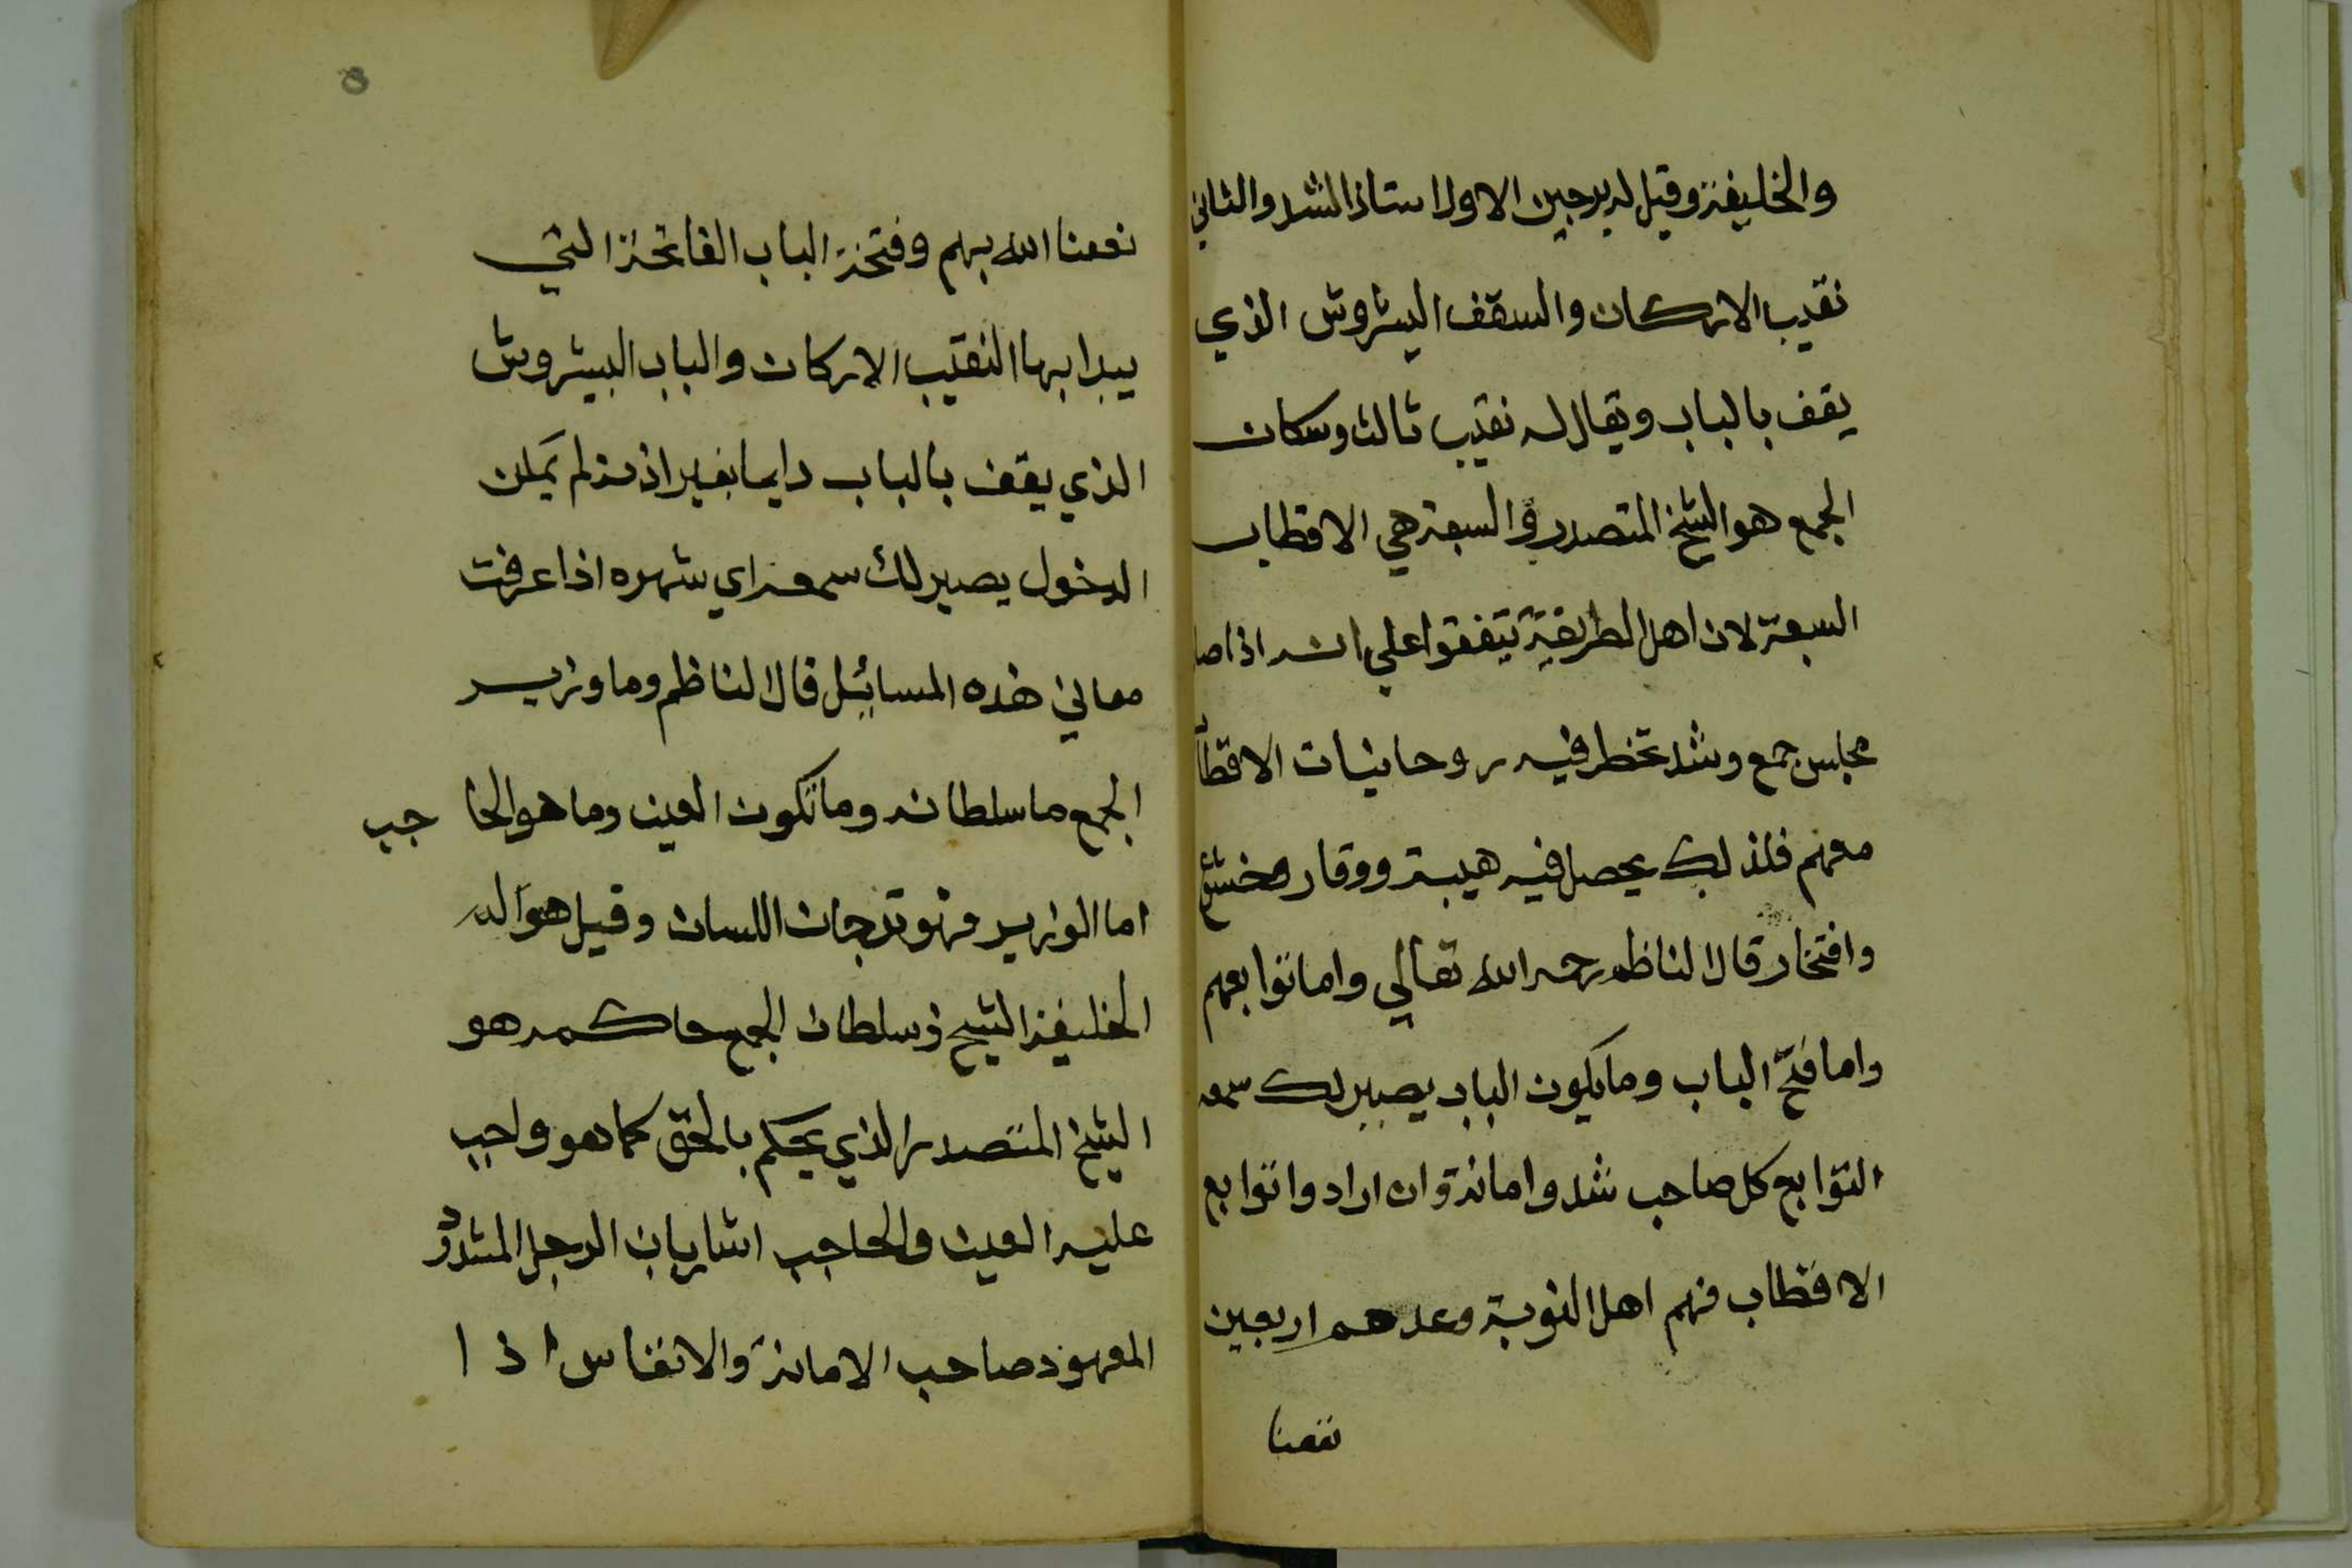 والخليفة وقيل له برجين الاول استاذ الشد والثاني
نقيب الاركان والسقف البيشروش الذي
يقف بالباب ويقال له نقيب ثالث وسكان
الجمع هو الشيخ المتصدر في السبعة هي الاقطاب
السبعة لان اهل الطريقة يتفقوا علي انه اذا صا
مجلس جمع وشد تخطر فيه روحانيات الاقطاب
معهم فلذلك يحصل فيه هيبة ووقار وخشع
وافتخار قال الناظم رحمه الله تعالي واما توابعهم
واما فتح الباب وما يكون الباب يصير لك سمعه
التوابع كل صاحب شد وامانة وان اراد واتوابع
الاقطاب فهم اهل النوبة وعدهم اربعين
نفعنا
8
نفعنا الله بهم وفتحة الباب الفاتحة التي
يبدا بها النقيب الاركان والباب البيشروش
الذي يقف بالباب دايما بغير اذنه لم يمكن
الدخول يصير لك سمعه اي شهره اذا عرفت
معاني هذه المسائيل قال الناظم وما وزير
الجمع ما سلطانه وما تكون العين وما هو الحا جب
اما الوزير فهو ترجمان اللسان وقيل هو اله
الخليفة الشيخ وسلطان الجمع حاكمه هو
الشيخ المتصدر الذي يحكم بالحق كما هو واجب
عليه العين والحاجب اشاريان الرجل المشدود
المعهود صاحب الامانة والانفاس اذا